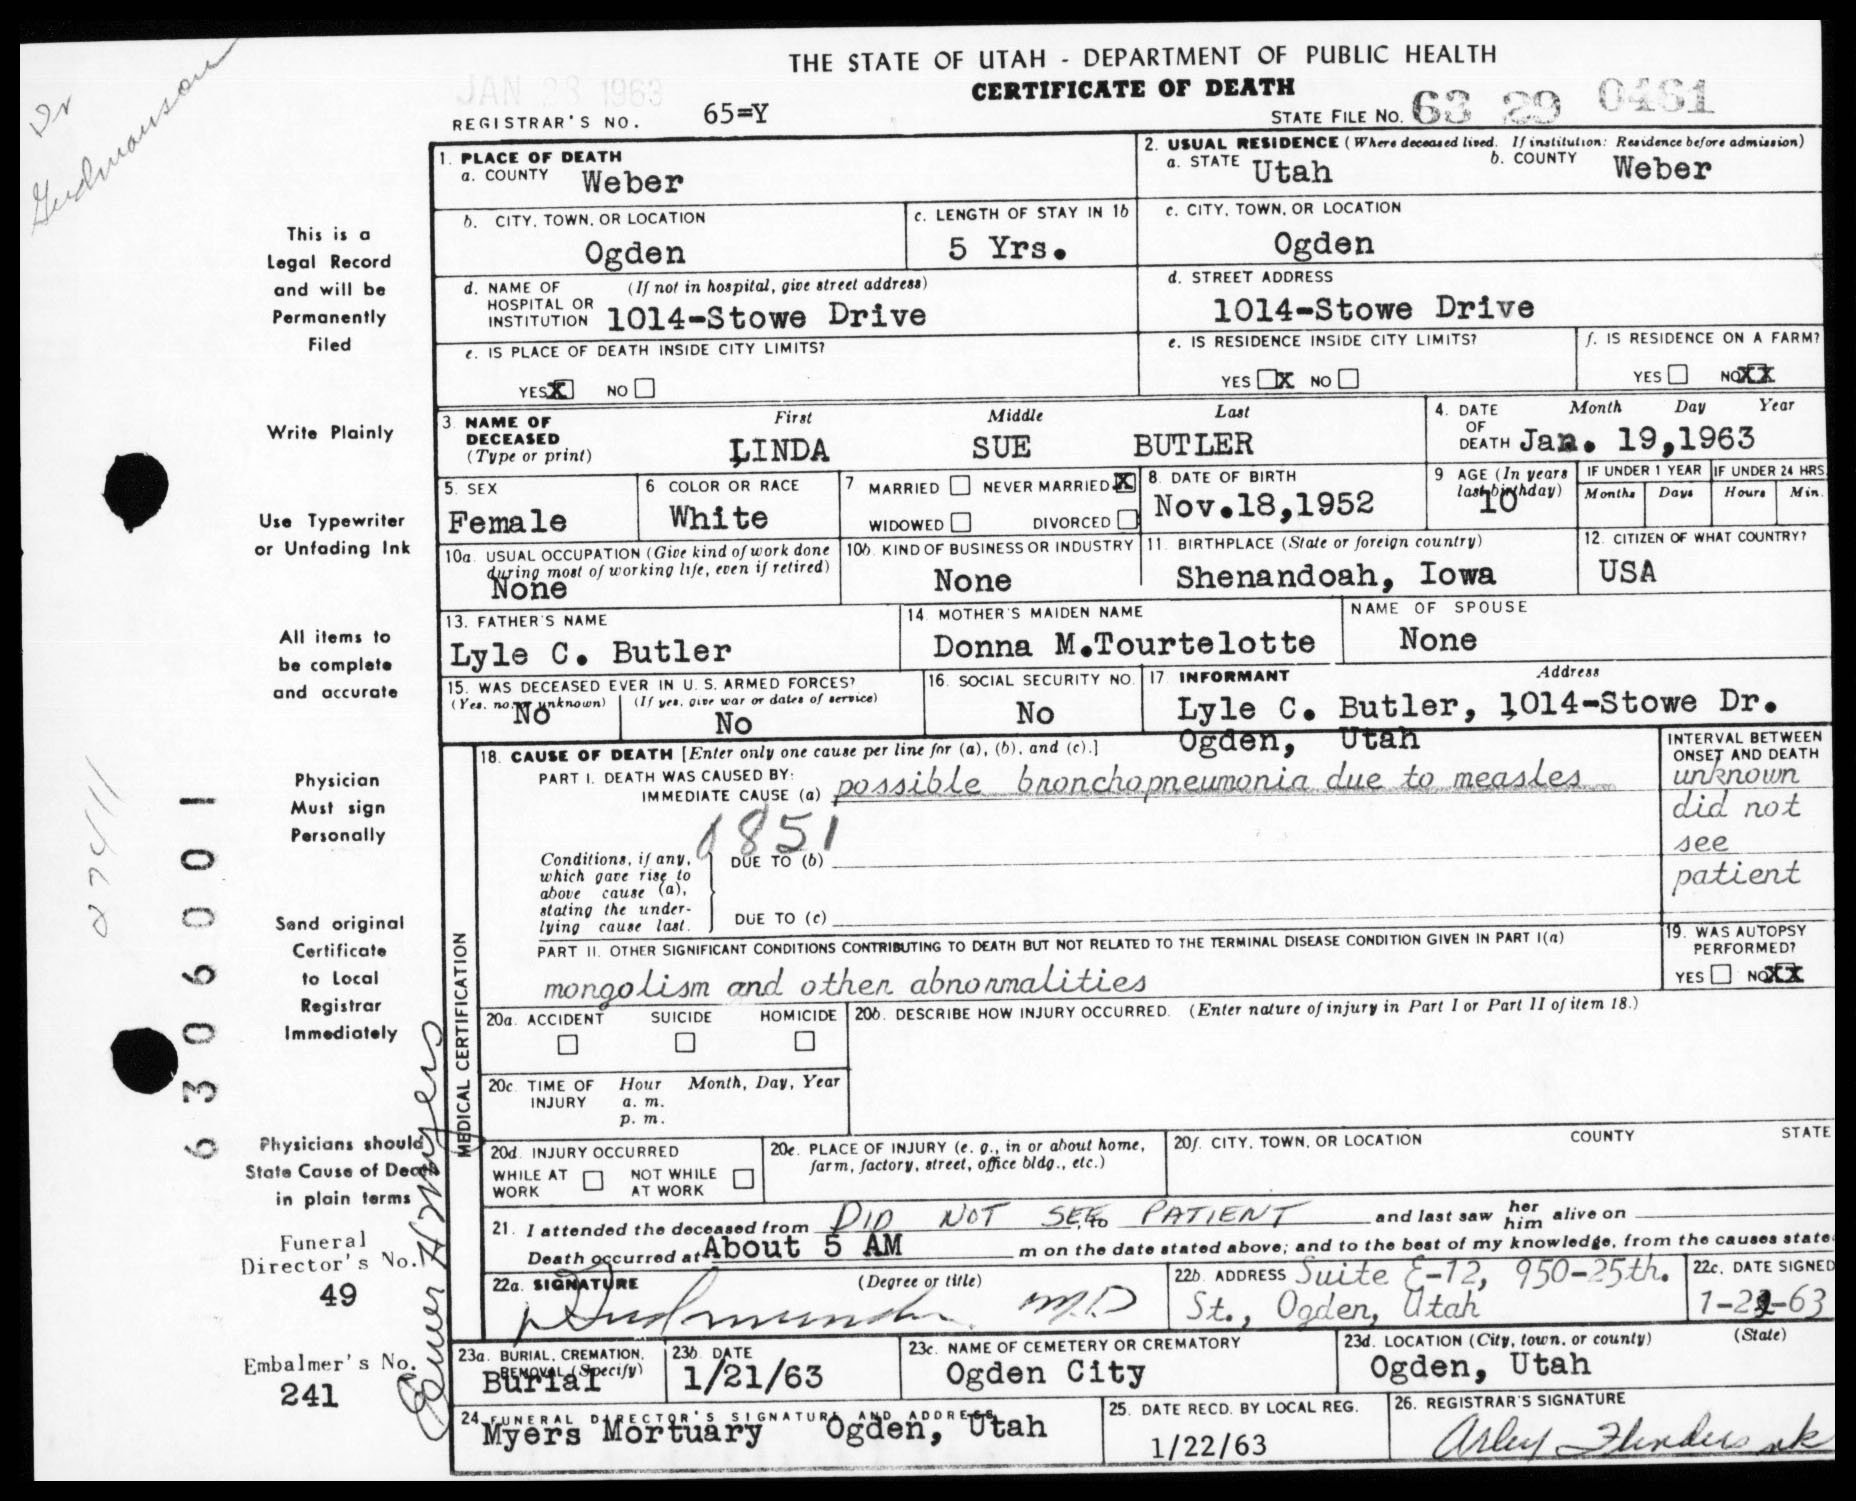 THE STATE OF UTAH - DEPARTMENT OF PUBLIC HEALTH
CERTIFICATE OF DEATH
JAN 28 1963
REGISTRAR'S NO. 65=Y
STATE FILE NO. 63 29 0461
Dr
Gudmanson
This is a
Legal Record
and will be
Permanently
Filed
Write Plainly
Use Typewriter
or Unfading Ink
All items to
be complete
and accurate
Physician
Must sign
Personally
Send original
Certificate
to Local
Registrar
Immediately
Physicians should
State Cause of Death
in plain terms
Funeral
Director's No.
49
Embalmer's No.
241
6306001
27411
Elmer H Myers
1. PLACE OF DEATH
a. COUNTY Weber
2. USUAL RESIDENCE (Where deceased lived. If institution: Residence before admission)
a. STATE Utah b. COUNTY Weber
b. CITY, TOWN, OR LOCATION
Ogden
c. LENGTH OF STAY IN 1b
5 Yrs.
c. CITY, TOWN, OR LOCATION
Ogden
d. NAME OF HOSPITAL OR INSTITUTION (If not in hospital, give street address)
1014-Stowe Drive
d. STREET ADDRESS
1014-Stowe Drive
e. IS PLACE OF DEATH INSIDE CITY LIMITS?
YES X NO
e. IS RESIDENCE INSIDE CITY LIMITS?
YES X NO
f. IS RESIDENCE ON A FARM?
YES NO XX
3 NAME OF DECEASED (Type or print)
First Middle Last
LINDA SUE BUTLER
4. DATE OF DEATH Month Day Year
Jan. 19,1963
5. SEX
Female
6 COLOR OR RACE
White
7 MARRIED NEVER MARRIED X
WIDOWED DIVORCED
8. DATE OF BIRTH
Nov.18,1952
9 AGE (In years last birthday)
10
IF UNDER 1 YEAR
Months Days
IF UNDER 24 HRS.
Hours Min.
10a. USUAL OCCUPATION (Give kind of work done during most of working life, even if retired)
None
10b. KIND OF BUSINESS OR INDUSTRY
None
11. BIRTHPLACE (State or foreign country)
Shenandoah, Iowa
12. CITIZEN OF WHAT COUNTRY?
USA
13. FATHER'S NAME
Lyle C. Butler
14. MOTHER'S MAIDEN NAME
Donna M.Tourtelotte
NAME OF SPOUSE
None
15. WAS DECEASED EVER IN U. S. ARMED FORCES?
(Yes, no, or unknown) (If yes, give war or dates of service)
No No
16. SOCIAL SECURITY NO.
No
17 INFORMANT Address
Lyle C. Butler, 1014-Stowe Dr.
Ogden, Utah
MEDICAL CERTIFICATION
18. CAUSE OF DEATH [Enter only one cause per line for (a), (b), and (c).]
PART I. DEATH WAS CAUSED BY:
IMMEDIATE CAUSE (a) possible bronchopneumonia due to measles
0851
Conditions, if any, which gave rise to above cause (a), stating the underlying cause last.
DUE TO (b)
DUE TO (c)
INTERVAL BETWEEN ONSET AND DEATH
unknown
did not
see
patient
PART II. OTHER SIGNIFICANT CONDITIONS CONTRIBUTING TO DEATH BUT NOT RELATED TO THE TERMINAL DISEASE CONDITION GIVEN IN PART I(a)
mongolism and other abnormalities
19. WAS AUTOPSY PERFORMED?
YES NO XX
20a. ACCIDENT SUICIDE HOMICIDE
20b. DESCRIBE HOW INJURY OCCURRED. (Enter nature of injury in Part I or Part II of item 18.)
20c. TIME OF INJURY Hour Month, Day, Year
a. m.
p. m.
20d. INJURY OCCURRED
WHILE AT WORK NOT WHILE AT WORK
20e. PLACE OF INJURY (e. g., in or about home, farm, factory, street, office bldg., etc.)
20f. CITY, TOWN, OR LOCATION COUNTY STATE
21. I attended the deceased from DID NOT SEE to PATIENT and last saw her him alive on
Death occurred at About 5 AM m on the date stated above; and to the best of my knowledge, from the causes state
22a. SIGNATURE (Degree or title)
M.D
22b. ADDRESS Suite E-12, 950-25th.
St., Ogden, Utah
22c. DATE SIGNED
1-22-63
23a. BURIAL, CREMATION, REMOVAL (Specify)
Burial
23b. DATE
1/21/63
23c. NAME OF CEMETERY OR CREMATORY
Ogden City
23d. LOCATION (City, town, or county) (State)
Ogden, Utah
24 FUNERAL DIRECTOR'S SIGNATURE AND ADDRESS
Myers Mortuary Ogden, Utah
25. DATE RECD. BY LOCAL REG.
1/22/63
26. REGISTRAR'S SIGNATURE